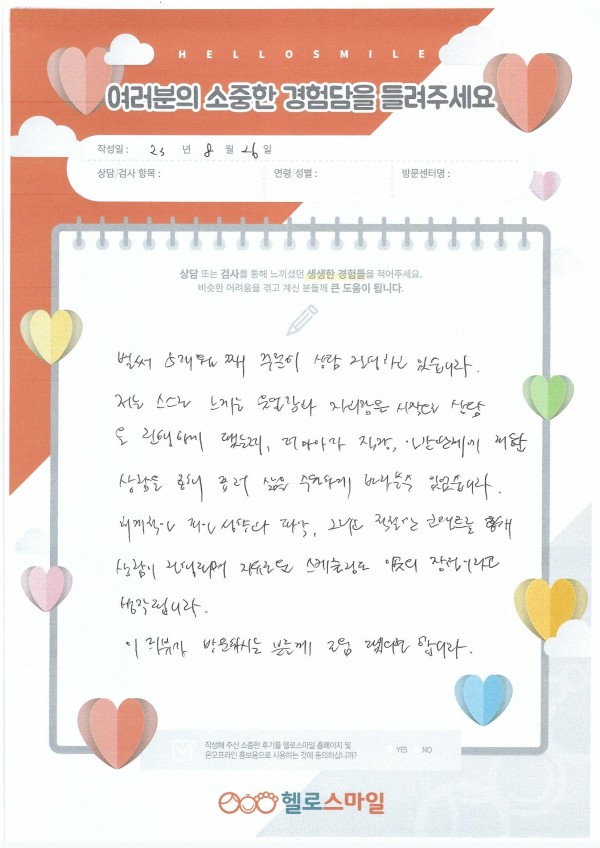 HELLOSMILE
여러분의 소중한 경험담을 들려주세요
작성일 : 23 년 8 월 26 일
상담/검사 항목 : 연령/성별 : 방문센터명 :
상담 또는 검사를 통해 느끼셨던 생생한 경험들을 적어주세요.
비슷한 어려움을 겪고 계신 분들께 큰 도움이 됩니다.
벌써 5개월 째 상담 진행하고 있습니다.
저는 스스로 느끼는 우울감과 시작으로 상담
을 진행하게 됐는데, 더 나아가 직장,
상담을 통해 삶을 바라볼 수 있었습니다.
그리고 적절한 통해
상담이 진행되며 자유로운 스케줄링도 장점이라고
생각됩니다.
이 리뷰가 방문하시는 분들께 도움 됐으면 합니다.
작성해 주신 소중한 후기를 헬로스마일 홈페이지 및
온오프라인 홍보용으로 사용하는 것에 동의하십니까? YES NO
헬로스마일